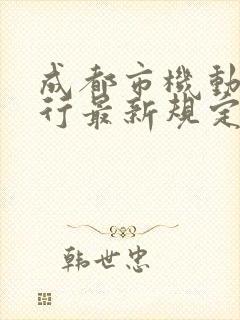 成都市機動
行最新規定
韩世忠